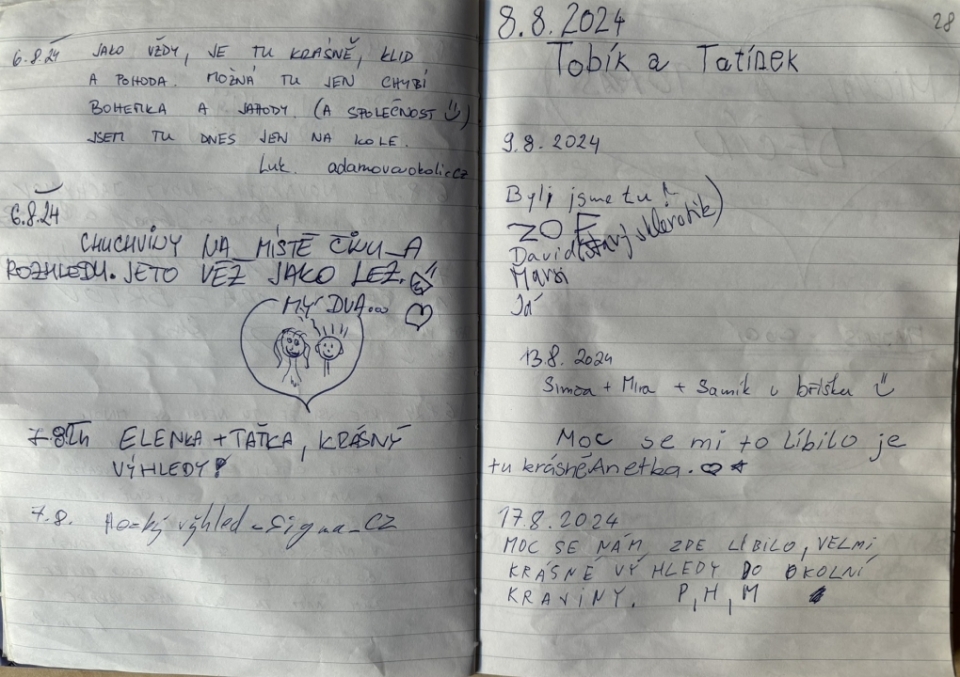 6.8.24 JAKO VŽDY, JE TU KRÁSNĚ, KLID
A POHODA. MOŽNÁ TU JEN CHYBÍ
BOHEMKA A JAHODY. (A SPOLEČNOST)
JSEM TU DNES JEN NA KOLE.
Luk. adamovaokoli.cz
6.8.24
CHUCHVÍNY NA MÍSTĚ ČINU A
ROZHLEDU. JETO VĚŽ JAKO LEŽ.
MY DVA...
7.8.24 ELENKA + TAŤKA, KRÁSNÝ
VÝHLEDY!
7.8. výhled - Sigma_CZ
28
8.8.2024
Tobík a Tatínek
9.8.2024
Byli jsme tu!
ZOE
David (starý sklerotik)
Marsi
Já
13.8.2024
Simča + Míra + Samík v bříšku
Moc se mi to líbilo je
tu krásně Anetka.
17.8.2024
MOC SE NÁM ZDE LÍBILO, VELMI
KRÁSNÉ VÝHLEDY DO OKOLNÍ
KRAJINY. P, H, M